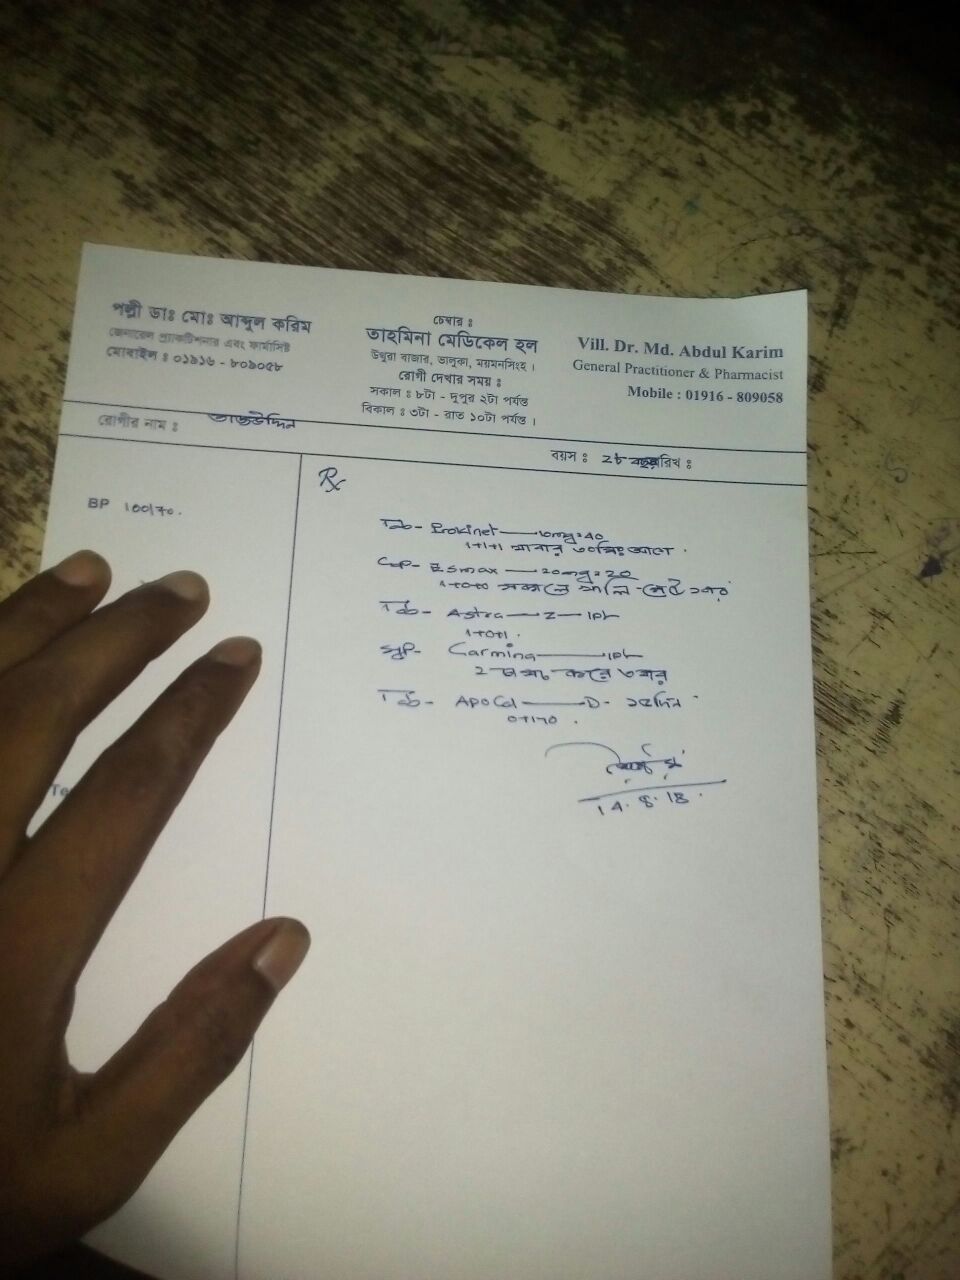 পল্লী ডাঃ মোঃ আব্দুল করিম
জেনারেল প্র্যাকটিশনার এবং ফার্মাসিষ্ট
মোবাইল : ০১৯১৬ - ৮০৯০৫৮
চেম্বার :
তাহমিনা মেডিকেল হল
উথুরা বাজার, ভালুকা, ময়মনসিংহ।
রোগী দেখার সময় :
সকাল : ৮টা - দুপুর ২টা পর্যন্ত
বিকাল : ৩টা - রাত ১০টা পর্যন্ত।
Vill. Dr. Md. Abdul Karim
General Practitioner & Pharmacist
Mobile : 01916 - 809058
রোগীর নাম :
বয়স : ২৮
Rx
BP 100/70.
Tab- Prokinet — 10mg = 40
1+1+1 খাবার ৩০মিঃ আগে
Cap- Esmax — 20mg = 20
1+0+0 সকালে খালি পেটে
Tab- Astra — Z —
1+0+1.
Syp- Carmina —
২ চামচ করে ৩বার
Tab- —D- ১৫দিন
0+1+0.
14.8.18.